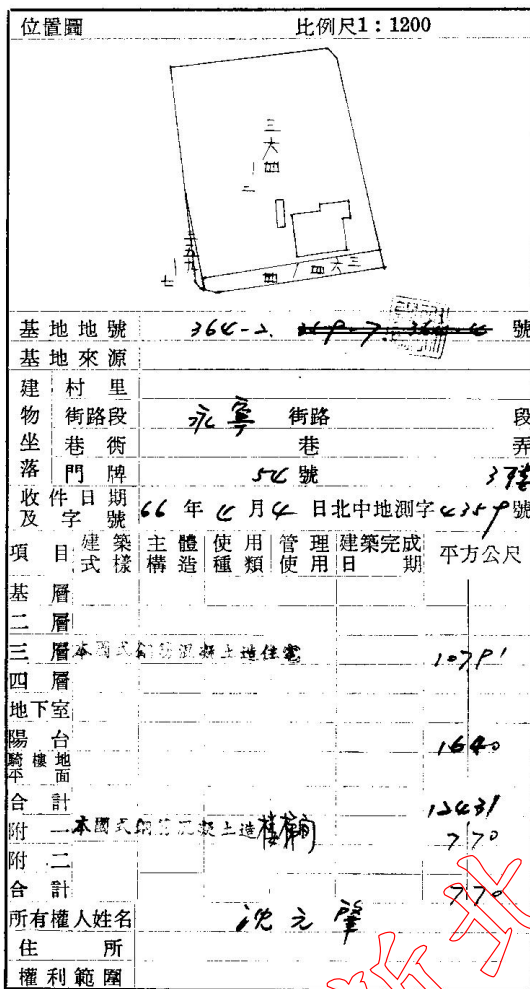 位置圖 比例尺1：1200
三六四｜二
二五九｜七
三六四／四
基地地號 364-2. 369-7. 364-4 號
基地來源
建物坐落 村里
街路段 永寧 街路 段
巷衖 巷 弄
門牌 54號 3樓
收件日期及字號 66年4月4日北中地測字4359號
項目 建築式樣 主體構造 使用種類 管理使用 建築完成日期 平方公尺
基層
二層
三層 本國式鋼筋混凝土造住宅 107.91
四層
地下室
陽台 16.40
騎樓地平面
合計 124.31
附一 本國式鋼筋混凝土造樓梯間 7.70
附二
合計 7.70
所有權人姓名 沈元肇
住所
權利範圍
新北